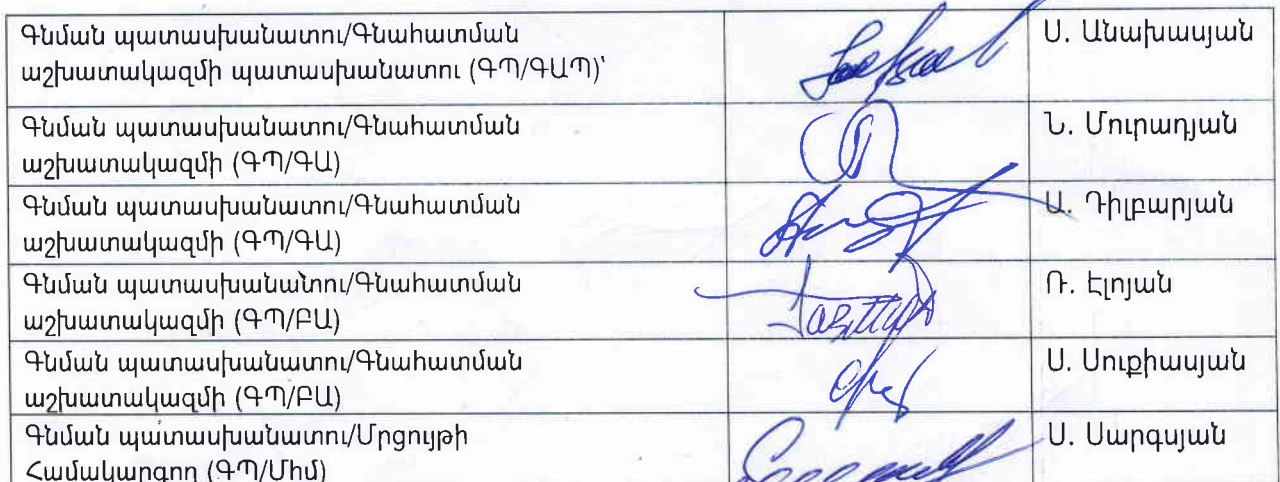 Գնման պատասխանատու/Գնահատման
աշխատակազմի պատասխանատու (ԳՊ/ԳԱՊ)՝
Ս. Անախասյան
Գնման պատասխանատու/Գնահատման
աշխատակազմի (ԳՊ/ԳԱ)
Ն. Մուրադյան
Գնման պատասխանատու/Գնահատման
աշխատակազմի (ԳՊ/ԳԱ)
Ա. Դիլբարյան
Գնման պատասխանատու/Գնահատման
աշխատակազմի (ԳՊ/ԲԱ)
Ռ. Էլոյան
Գնման պատասխանատու/Գնահատման
աշխատակազմի (ԳՊ/ԲԱ)
Ս. Սուքիասյան
Գնման պատասխանատու/Մրցույթի
Համակարգող (ԳՊ/Մհմ)
Ս. Սարգսյան